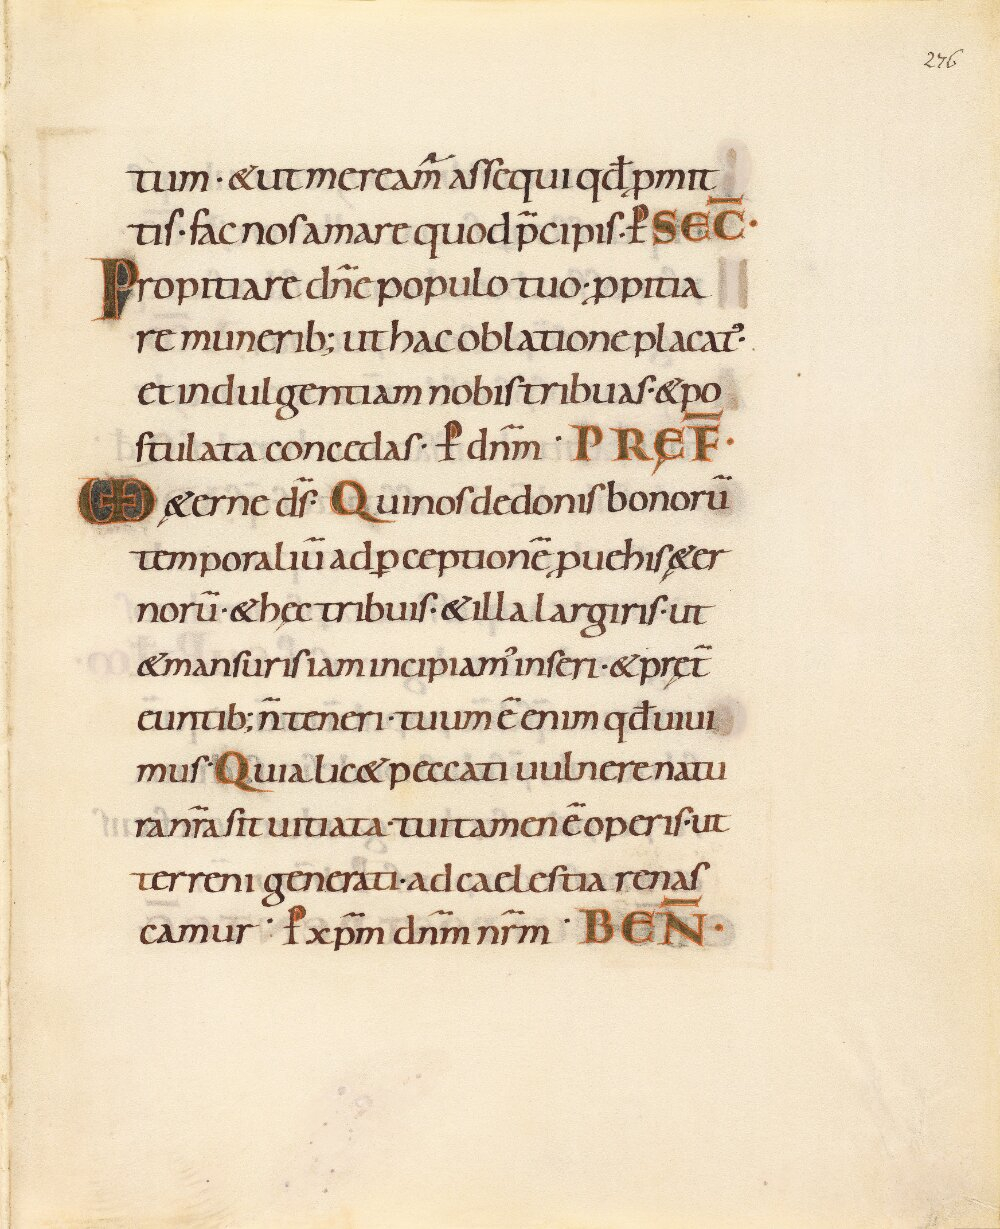 276
tum · &ut meream̄ assequi qđ ꝓmit
tis · fac nos amare quod p̄cipis · ꝑ SEC̄ ·
Propitiare dn̄e populo tuo · ꝓpitia
re munerib; ut hac oblatione placat᷒ ·
et indulgentiam nobis tribuas · &po
stulata concedas · ꝑ dn̄m · PREF̄ ·
VD &erne ds̄ · Qui nos de donis bonorū
temporaliū ad ꝑceptionē ꝓuehis &er
norū · &hęc tribuis · &illa largiris · ut
&mansuris iam incipiam᷒ inseri · &pręt̄
euntib; n̄ teneri · tuum ē enim qđ uiui
mus · Quia lic& peccati uulnere natu
ra nr̄a sit uitiata · tui tamen ē operis · ut
terreni generati · ad caelestia renas
camur · ꝑ xp̄m dn̄m nr̄m · BEN̄ ·